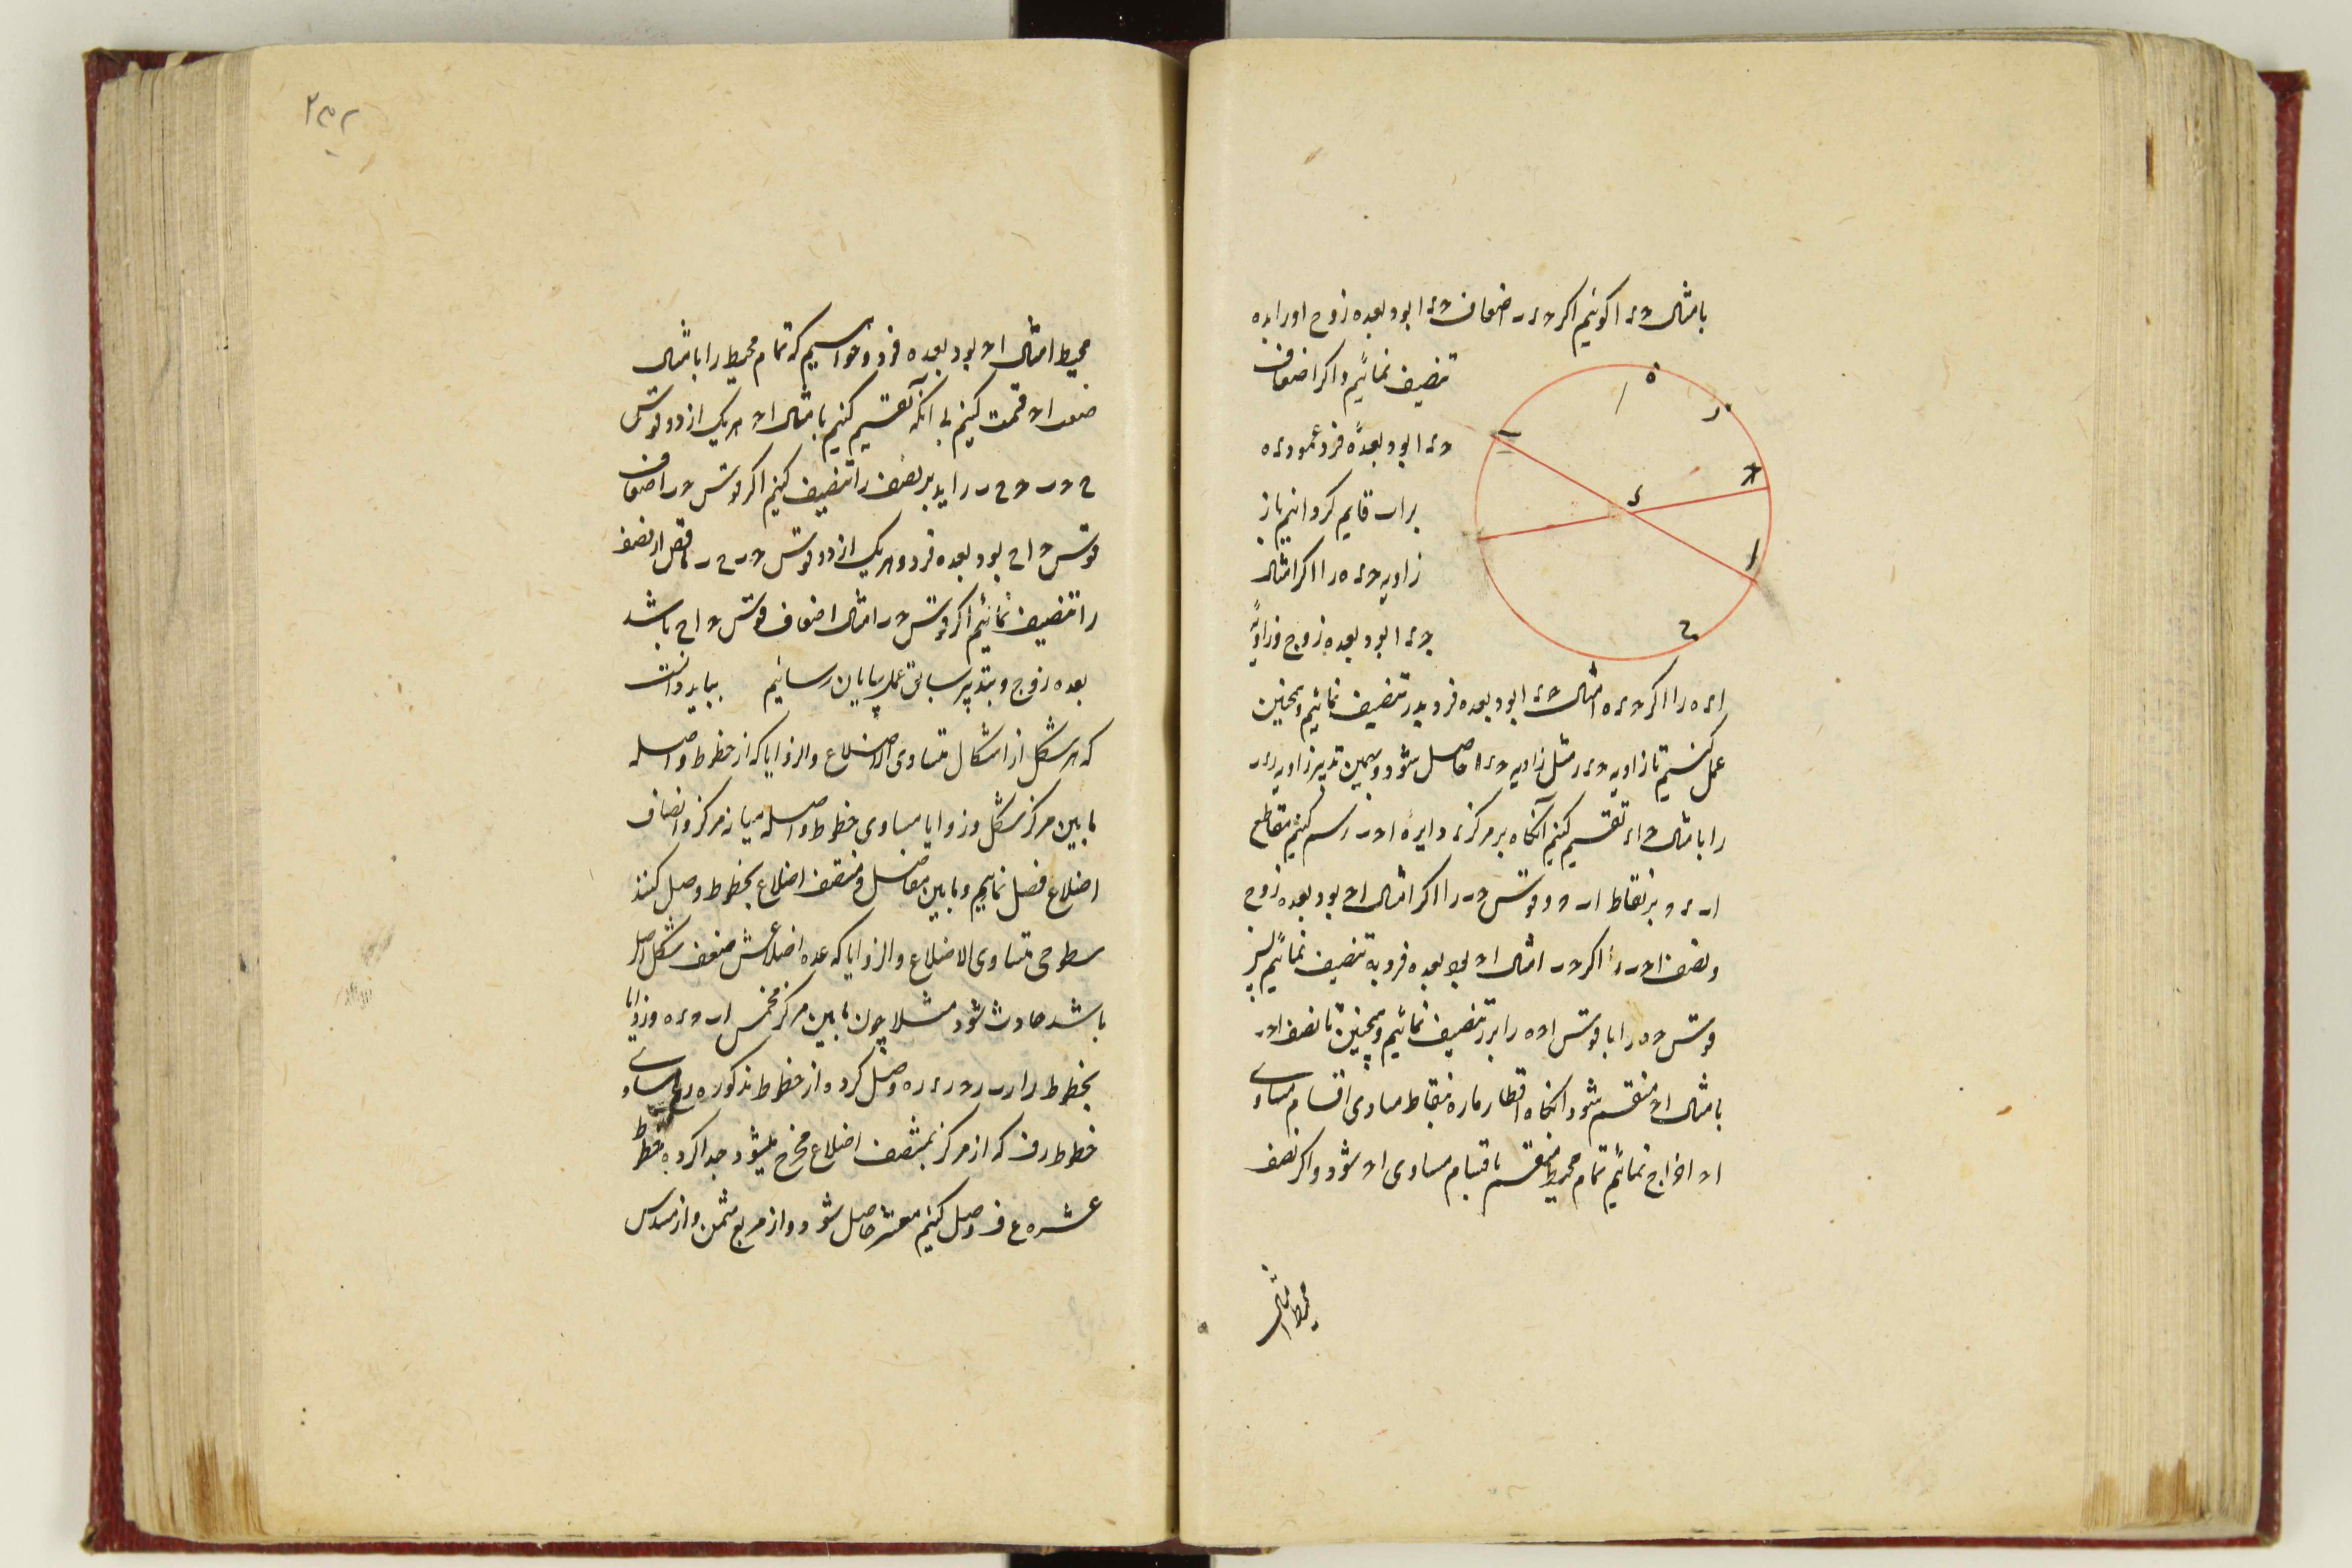 بامثال ح ء ا کوئیم اکر ح ء ب اضعاف ح ء ا بود بعده زوج اورا بده
تنصیف نمائیم و اکر اضعاف
ح ء ا بود بعده فرد عمود ء ه
بر اب قایم کردانیم باز
زاویه ح ء ه را اکر امثال
ح ء ا بود بعده زوج و زاویه
ا ء ه را اکر ح ء ه امثال ح ء ا بود بعده فرد بدر تنصیف نمائیم و همچنین
عمل کنیم تا زاویه ح ء ر مثل زاویه ح ء ا حاصل شود و بهمین تدبیر زاویه ر ء ب
را بامثال ح ا ء تقسیم کنیم آنکاه بر مرکز ء دایره ا ح ب رسم کنیم مقاطع
ا ب ء و بر نقاط ا ب و قوس ح ب را اکر امثال ا ح بود بعده زوج
و نصف ا ح ب را اکر ح ب امثال ا ح بود بعده فرد به تنصیف نمائیم پس
قوس ح ه را با قوس ا ح ه را بر تنصیف نمائیم و همچنین تا نصف ا ح ب
بامثال ا ح منقسم شود آنکاه اقطار ماره بنقاط مبادی اقسام مساوی
ا ح اخراج نمائیم تمام محیط منقسم باقسام مساوی ا ح شود و اکر نصف
محیط امثال
۲۵۲
محیط امثال ا ح بود بعده فرد و خواسیم که تمام محیط را بامثال
ضعف ا ح قسمت کنیم بی آنکه تقسیم کنیم بامثال ا ح هریک از دو قوس
را تنصیف کنیم اکر قوس ح ب اضعاف
قوس ح ا ح بود بعده فرد و هریک از دو قوس ح ب ح ب ناقص از نصف
را تنصیف نمائیم اکر قوس ح ب امثال اضعاف قوس ح ا ح باشد
بعده زوج و بتدبیر سابق عمل بپایان رسانیم بباید دانست
که هر شکل از اشکال متساوی الاضلاع والزوایا که از خطوط واصله
مابین مرکز شکل و زوایا مساوی خطوط واصله میانه مرکز و انصاف
اضلاع فصل نماییم و مابین مفاصل و منتصف اضلاع بخطوط وصل کنند
سطوحی متساوی الاضلاع والزوایا که عده اضلاعش ضعف شکل اصل
باشد حادث شود مثلا چون مابین مرکز مخمس ا ب ح ء ه و زوایا
بخطوط را رب رح رء ره وصل کرده از خطوط مذکوره رع مساوی
خطوط رف که از مرکز بمنتصف اضلاع مخرج میشود جدا کرده خطوط
عشره ع ف وصل کنیم معشر حاصل شود و از مربع مثمن و از مسدس